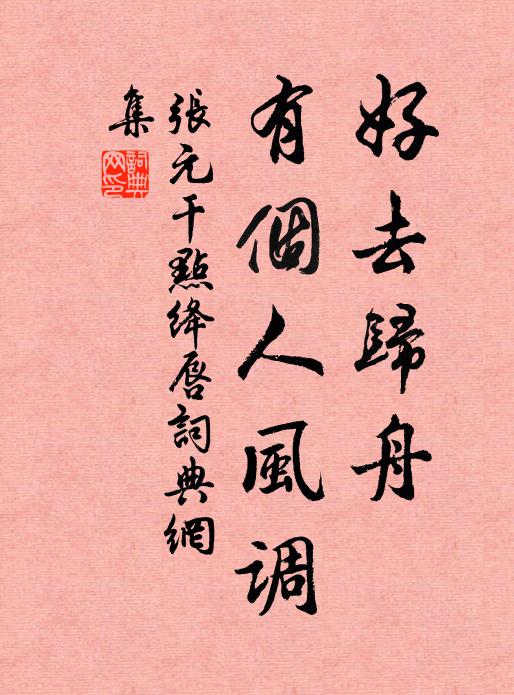 好去歸舟
有個人風調
張元干點絳唇詞典網
集
詞典網印